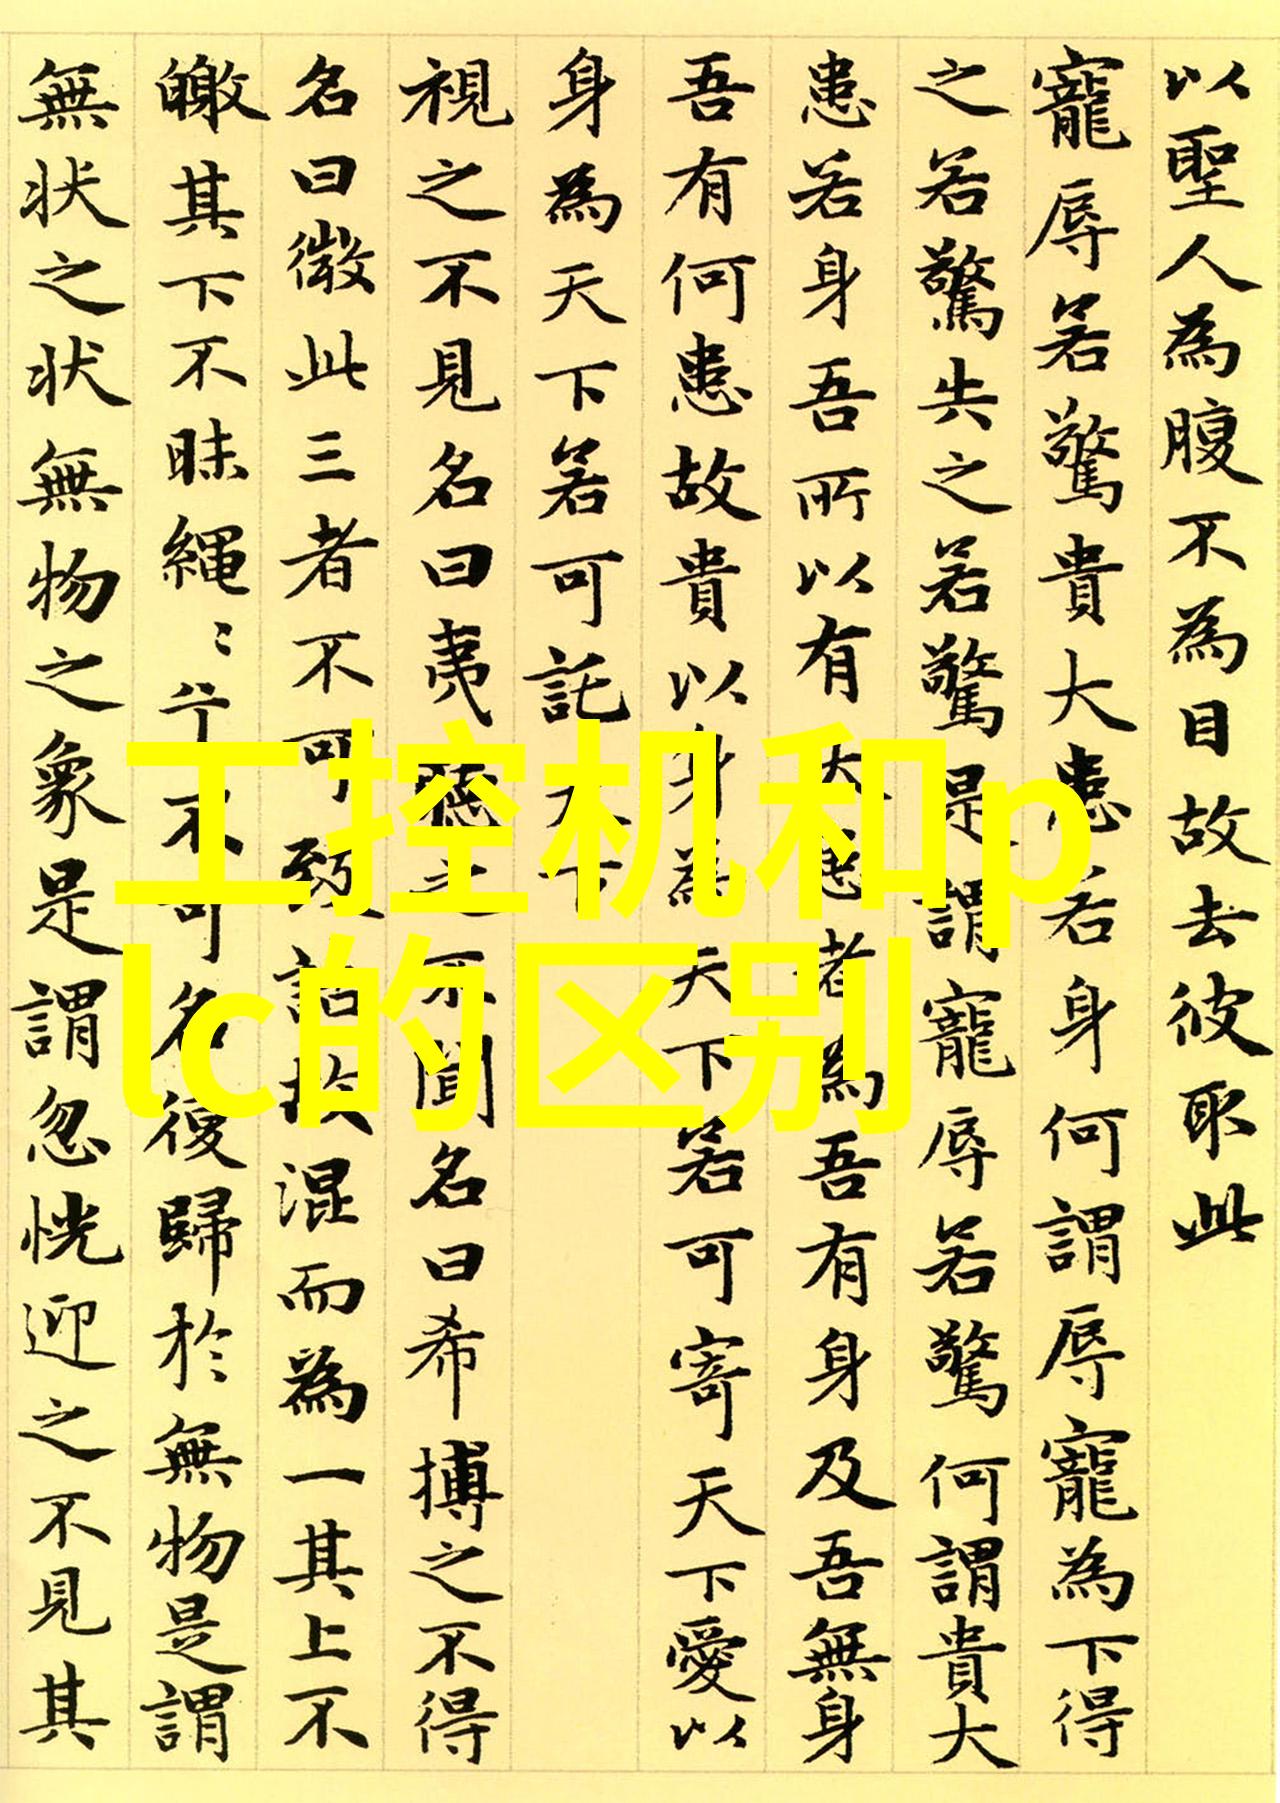 以聖人為腹不為目故去彼取此
寵辱若驚貴大患若身何謂辱寵為下得
之若驚失之若驚是謂寵辱若驚何謂貴大
患若身吾所以有大患者為吾有身及吾無身
吾有何患故貴以身為天下若可寄天下愛以
身為天下若可託天下
視之不見名曰夷聽之不聞名曰希搏之不得
名曰微此三者不可致詰故混而為一其上不
皦其下不昧繩〻兮不可名復歸於無物是謂
無状之状無物之象是謂忽恍迎之不見其
工控机和p
lc的区别